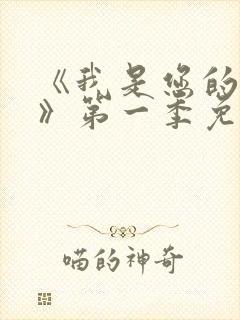 《我是您的
》第一季免
喵的神奇